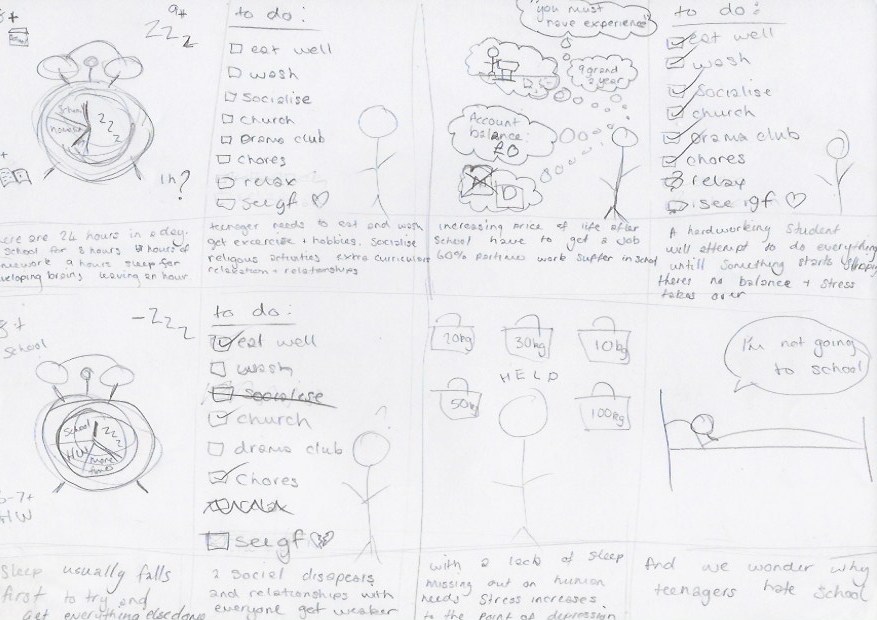 8+
9+
ZZZ
School
ZZZ
1h?
to do:
eat well
wash
Socialise
church
Drama club
chores
relax
see gf
"you must have experience"
9 grand a year
Account balance: £0
to do:
eat well
wash
Socialise
church
Drama club
chores
relax
see gf
there are 24 hours in a day.
School for 8 hours hours of
homework 9 hours sleep for
developing brains leaving an hour.
teenager needs to eat and wash
get excercise + hobbies. Socialise
religious activities extra curricular
relaxation + relationships
increasing price of life after
school have to get a job
60% partime work suffer in school
A hardworking student
will attempt to do everything
untill something starts slipping
theres no balance + stress
takes over
8+
School
-ZZZ
School
ZZZ
HW
more
6-7+
HW
to do:
eat well
wash
Socialise
church
drama club
Chores
relax
see gf
20kg
30kg
10kg
HELP
50kg
100kg
I'm not going
to school
Sleep usually falls
first to try and
get everything else done
2 Social disapears
and relationships with
everyone get weaker
with a lack of sleep
missing out on human
needs Stress increases
to the point of depression
And we wonder why
teenagers hate school